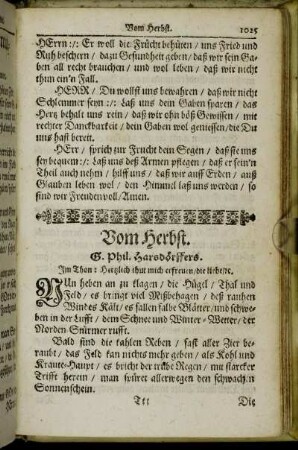 Vom Herbst. 1025
HErrn :/: Er woll die Frücht behüten / uns Fried und
Ruh beschern / dazu Gesundheit geben / daß wir sein Ga-
ben all recht brauchen / und wol leben / daß wir nicht
thun ein'n Fall.
HERR / Du wollst uns bewahren / daß wir nicht
Schlemmer seyn :/: Laß uns dein Gaben sparen / das
Hertz behalt uns rein / daß wir ohn böß Gewissen / mit
rechter Danckbarkeit / dein Gaben wol geniessen / die Du
uns hast bereit.
HErr / sprich zur Frucht dein Segen / daß sie uns
sey bequem :/: Laß uns deß Armen pflegen / daß er sein'n
Theil auch nehm / hilff uns / daß wir auff Erden / auß
Glauben leben wol / den Himmel laß uns werden / so
sind wir Freudenvoll / Amen.
Vom Herbst.
G. Phil. Harsdörffers.
Im Thon: Hertzlich thut mich erfreuen / die liebe
NUn heben an zu klagen / die Hügel / Thal und
Feld / es bringt viel Mißbehagen / deß rauhen
Windes Kält / es fallen falbe Blätter / und schwe-
ben in der Lufft / dem Schnee und Winter-Wetter / der
Norden Stürmer rufft.
Bald sind die kahlen Reben / fast aller Zier be-
raubt / das Feld kan nichts mehr geben / als Kohl und
Kraute-Haupt / es bricht der Regen / mit starcker
Trifft herein / man spüret allerwegen den schwach'n
Sonnenschein.
Ttt Die